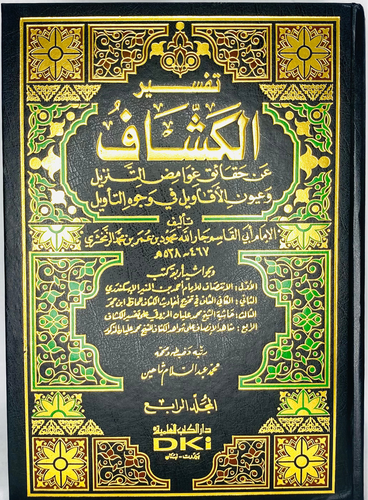 تفسير
الكشاف
عن حقائق غوامض التنزيل
وعيون الأقاويل في وجوه التأويل
تأليف
الإمام أبي القاسم جار الله محمود بن عمر بن محمد الزمخشري
٤٦٧ - ٥٣٨ هـ
وبحواشيه أربعة كتب
الأول: الانتصاف للإمام أحمد بن المنير الإسكندري
الثاني: الكافي الشاف في تخريج أحاديث الكشاف للحافظ ابن حجر
الثالث: حاشية الشيخ محمد عليان المرزوقي على تفسير الكشاف
الرابع: مشاهد الإنصاف على شواهد الكشاف للشيخ محمد عليان المذكور
رتبه وضبطه وصححه
محمد عبد السلام شاهين
المجلد الرابع
دار الكتب العلمية
DKi
بيروت - لبنان